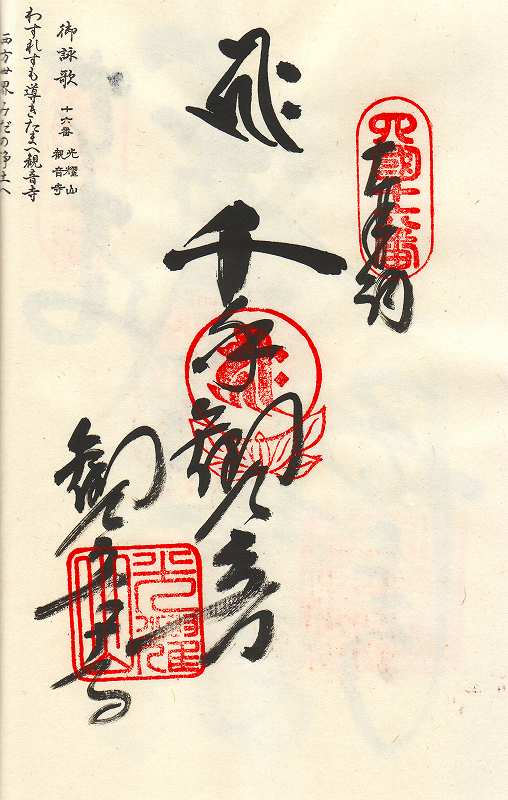 四国十六番
奉納
千手観音
観音寺
光耀山
御詠歌
十六番 光耀山
観音寺
わすれすも導きたまへ観音寺
西方世界みだの浄土へ